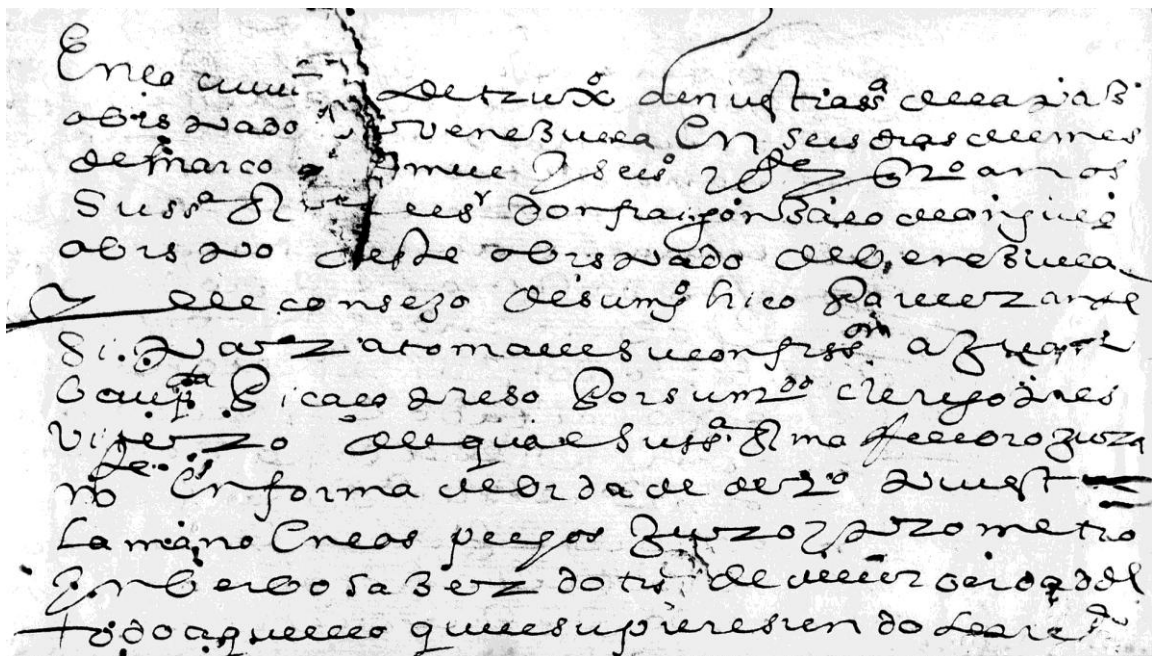 En la ciud de truxº de nuestra ssª de la paz
obispado de venezuela En seis dias del mes
de março de mill y seisº y años
Su ssª Rma el sr don frai gonzalo de angulo
obispo deste obispado de benezuela
y del consejo de su mgº hiço Parecer ante
si Para tomalle su confission a Juan
baupta Picaço preso Por su mdo clerigo pres
vitero del qual su ssª Rma jura
mº En forma debida de derº puest
La mano En los pechos juro y prometio
In berbo sazerdotis de decir verdad de
todo aquello que supiere siendole